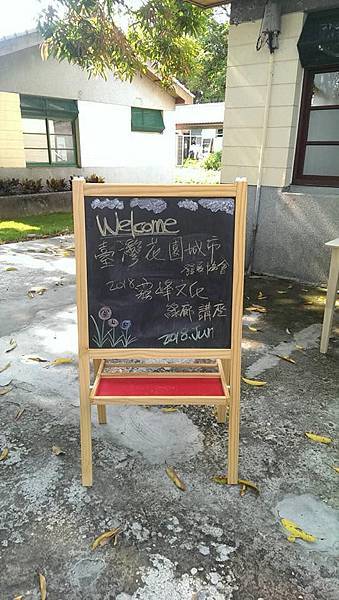 Welcome
臺灣花園城市
發展協會
2018 霧峰文化
綠廊講座
2018.Jun